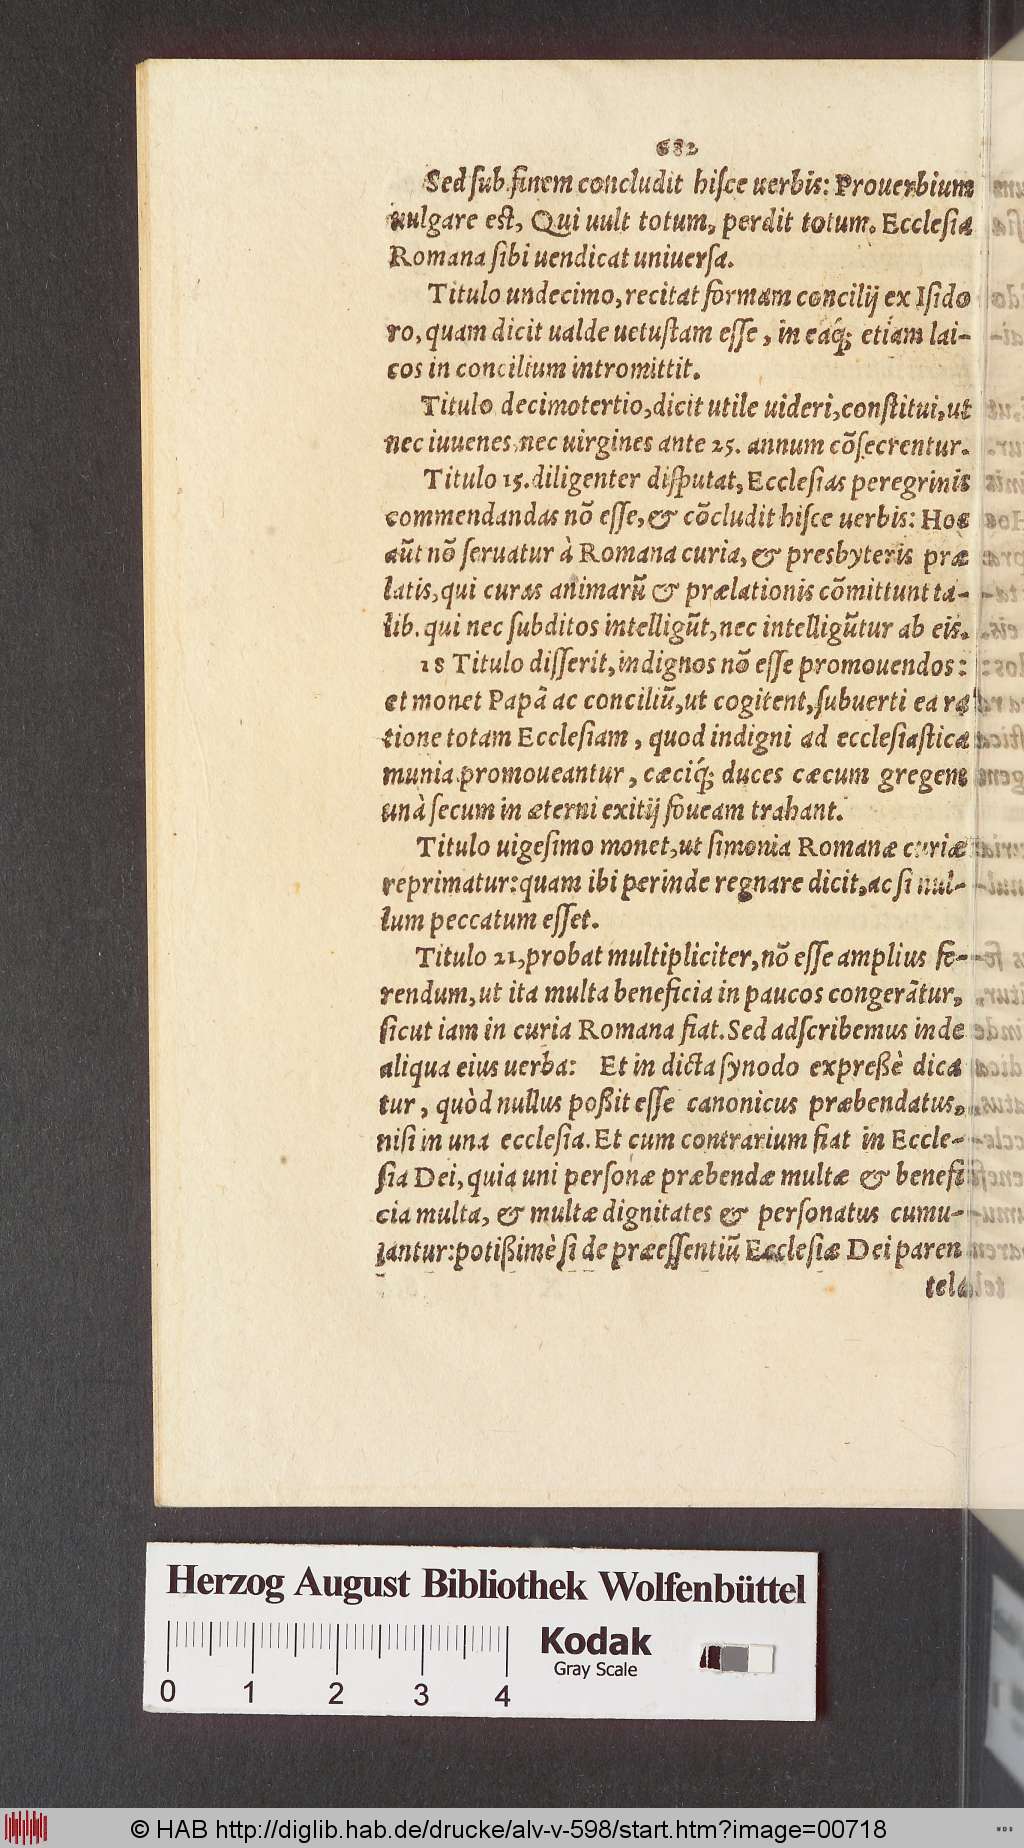 682
Sed ſub finem concludit hiſce uerbis: Prouerbium
uulgare eſt, Qui uult totum, perdit totum. Eccleſia
Romana ſibi uendicat uniuerſa.
Titulo undecimo, recitat formam concilij ex Iſido
ro, quam dicit ualde uetuſtam eſſe, in eaq́; etiam lai-
cos in concilium intromittit.
Titulo decimotertio, dicit utile uideri, conſtitui, ut
nec iuuenes, nec uirgines ante 25. annum cõſecrentur.
Titulo 15. diligenter diſputat, Eccleſias peregrinis
commendandas nõ eſſe, & cõcludit hiſce uerbis: Hoc
aũt nõ ſeruatur à Romana curia, & presbyteris præ
latis, qui curas animarũ & prælationis cõmittunt ta-
lib. qui nec ſubditos intelligũt, nec intelligũtur ab eis.
18 Titulo diſſerit, indignos nõ eſſe promouendos:
et monet Papã ac conciliũ, ut cogitent, ſubuerti ea ra
tione totam Eccleſiam, quod indigni ad eccleſiaſtica
munia promoueantur, cæciq́; duces cæcum gregem
unà ſecum in æterni exitij foueam trahant.
Titulo uigeſimo monet, ut ſimonia Romanæ curiæ
reprimatur: quam ibi perinde regnare dicit, ac ſi nul-
lum peccatum eſſet.
Titulo 21, probat multipliciter, nõ eſſe amplius fe-
rendum, ut ita multa beneficia in paucos congerãtur,
ſicut iam in curia Romana fiat. Sed adſcribemus inde
aliqua eius uerba: Et in dicta ſynodo expreßè dica
tur, quòd nullus poßit eſſe canonicus præbendatus,
niſi in una eccleſia. Et cum contrarium fiat in Eccle-
ſia Dei, quia uni perſonæ præbendæ multæ & benefi
cia multa, & multæ dignitates & perſonatus cumu-
lantur: potißimè ſi de præeſſentiũ Eccleſiæ Dei paren
tela
Herzog August Bibliothek Wolfenbüttel
Kodak
Gray Scale
0 1 2 3 4
© HAB http://diglib.hab.de/drucke/alv-v-598/start.htm?image=00718